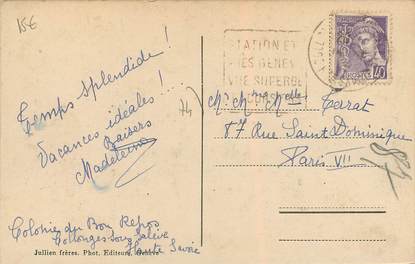 15€
Temps splendide !
Vacances idéales !...
Baisers
Madeleine
Colonie du Bon Repos
Collonges sous Salève
Haute Savoie
Jullien frères. Phot. Editeurs, Genève
STATION ET
VUE SUPERBE
POSTES
40
Mr Mme Melle Tarat
87 Rue Saint Dominique
Paris VII